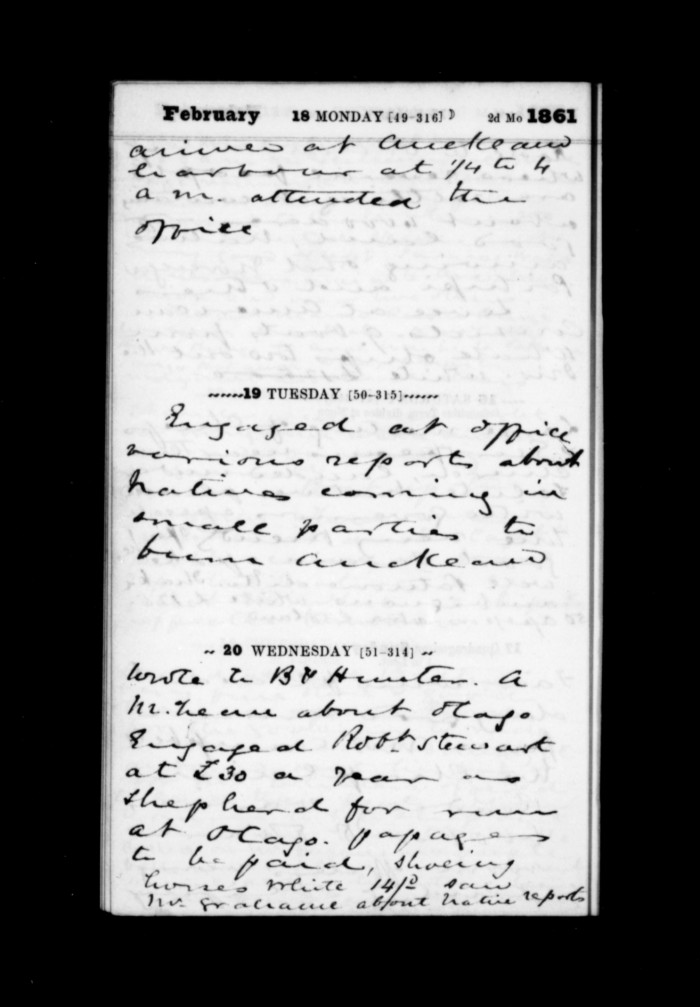 February 18 MONDAY [49-316] 2d Mo 1861
arived at Auckland
harbour at 1/4 to 4
a m. attended the
office
19 TUESDAY [50-315]
Engaged at office
various reports about
Natives coming in
small parties to
burn Auckland
20 WEDNESDAY [51-314]
Wrote to Hunter. A
McLean about Otago
Engaged Robt Stewart
at £30 a year as
shepherd for run
at Otago. papage
to be paid, shoeing
horses White 14/ saw
Mr Grahame about Native reports